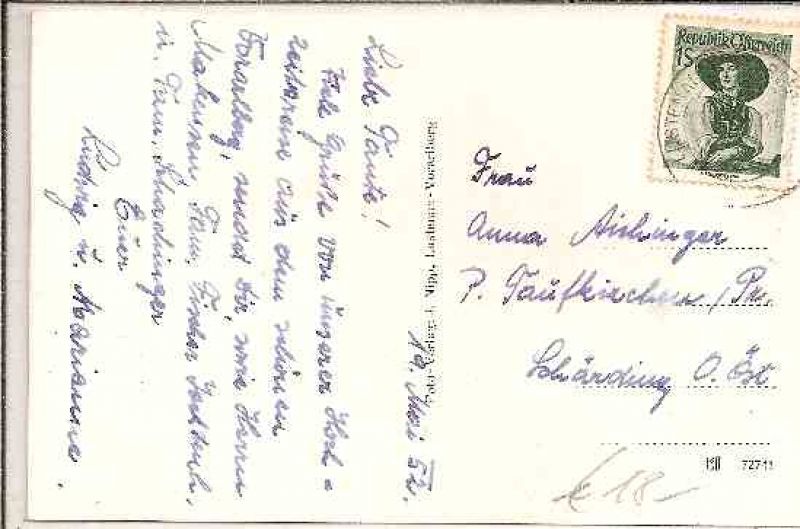 Liebe Tante!
Viele Grüße von unserer Hoch=
zeitsreise aus dem schönen
Vorarlberg, sendet Dir, sowie Herrn
Fam. Fischer
u. Fam. Schachinger
Euer
Ludwig u. Marianne.
19. Mai 52.
Foto-Verlag Mipp, Lustenau-Vorarlberg
Republik Österreich
1S
Frau
Anna Aichinger
P. Taufkirchen /Pr.
Schärding O. Öst
72711
€ 18-